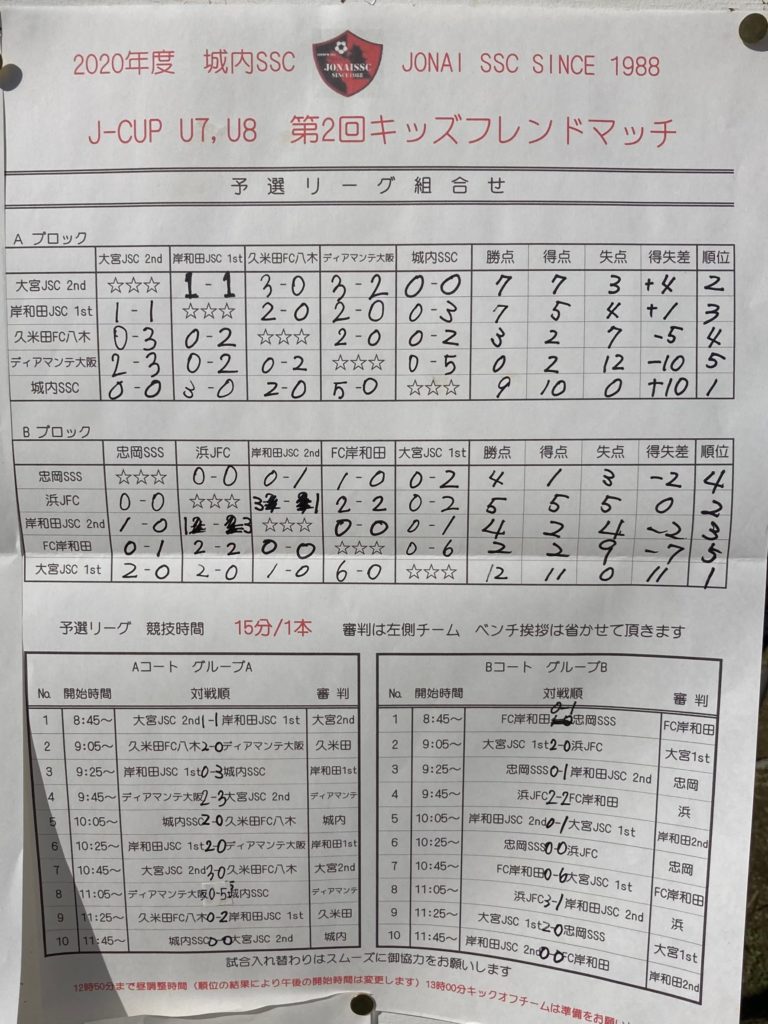 2020年度 城内SSC JONAISSC SINCE1988 JONAI SSC SINCE 1988
J-CUP U7,U8 第2回キッズフレンドマッチ
予選リーグ組合せ
A ブロック
大宮JSC 2nd 岸和田JSC 1st 久米田FC八木 ディアマンテ大阪 城内SSC 勝点 得点 失点 得失差 順位
大宮JSC 2nd ☆☆☆ 1-1 3-0 3-2 0-0 7 7 3 +4 2
岸和田JSC 1st 1-1 ☆☆☆ 2-0 2-0 0-3 7 5 4 +1 3
久米田FC八木 0-3 0-2 ☆☆☆ 2-0 0-2 3 2 7 -5 4
ディアマンテ大阪 2-3 0-2 0-2 ☆☆☆ 0-5 0 2 12 -10 5
城内SSC 0-0 3-0 2-0 5-0 ☆☆☆ 9 10 0 +10 1
B ブロック
忠岡SSS 浜JFC 岸和田JSC 2nd FC岸和田 大宮JSC 1st 勝点 得点 失点 得失差 順位
忠岡SSS ☆☆☆ 0-0 0-1 1-0 0-2 4 1 3 -2 4
浜JFC 0-0 ☆☆☆ 3-1 2-2 0-2 5 5 5 0 2
岸和田JSC 2nd 1-0 1-3 ☆☆☆ 0-0 0-1 4 2 4 -2 3
FC岸和田 0-1 2-2 0-0 ☆☆☆ 0-6 2 2 9 -7 5
大宮JSC 1st 2-0 2-0 1-0 6-0 ☆☆☆ 12 11 0 11 1
予選リーグ 競技時間 15分/1本 審判は左側チーム ベンチ挨拶は省かせて頂きます
Aコート グループA
No. 開始時間 対戦順 審判
1 8:45~ 大宮JSC 2nd 1-1 岸和田JSC 1st 大宮2nd
2 9:05~ 久米田FC八木 2-0 ディアマンテ大阪 久米田
3 9:25~ 岸和田JSC 1st 0-3 城内SSC 岸和田1st
4 9:45~ ディアマンテ大阪 2-3 大宮JSC 2nd ディアマンテ
5 10:05~ 城内SSC 2-0 久米田FC八木 城内
6 10:25~ 岸和田JSC 1st 2-0 ディアマンテ大阪 岸和田1st
7 10:45~ 大宮JSC 2nd 3-0 久米田FC八木 大宮2nd
8 11:05~ ディアマンテ大阪 0-5 城内SSC ディアマンテ
9 11:25~ 久米田FC八木 0-2 岸和田JSC 1st 久米田
10 11:45~ 城内SSC 0-0 大宮JSC 2nd 城内
Bコート グループB
No. 開始時間 対戦順 審判
1 8:45~ FC岸和田 0-1 忠岡SSS FC岸和田
2 9:05~ 大宮JSC 1st 2-0 浜JFC 大宮1st
3 9:25~ 忠岡SSS 0-1 岸和田JSC 2nd 忠岡
4 9:45~ 浜JFC 2-2 FC岸和田 浜
5 10:05~ 岸和田JSC 2nd 0-1 大宮JSC 1st 岸和田2nd
6 10:25~ 忠岡SSS 0-0 浜JFC 忠岡
7 10:45~ FC岸和田 0-6 大宮JSC 1st FC岸和田
8 11:05~ 浜JFC 3-1 岸和田JSC 2nd 浜
9 11:25~ 大宮JSC 1st 2-0 忠岡SSS 大宮1st
10 11:45~ 岸和田JSC 2nd 0-0 FC岸和田 岸和田2nd
試合入れ替わりはスムーズに御協力をお願いします
12時50分まで昼調整時間(順位の結果により午後の開始時間は変更します)13時00分キックオフチームは準備をお願い